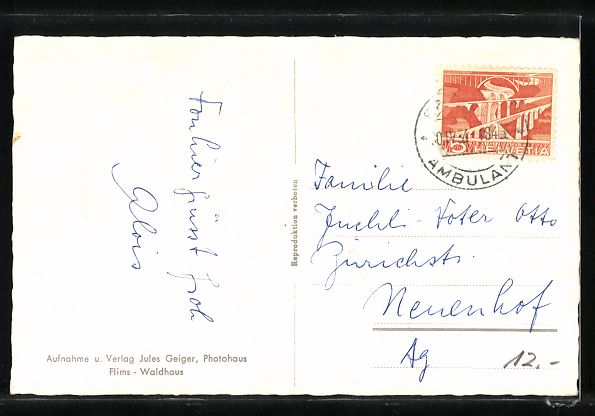 Von hier grüsst froh
Alois
Aufnahme u. Verlag Jules Geiger, Photohaus
Flims - Waldhaus
Reproduktion verboten
5
HELVETIA
AMBULANT
Familie
Juchli - Voter Otto
Zürichstr.
Neuenhof
Ag
12.-